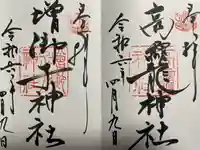 奉拝
高龗神社
令和六年四月九日
奉拝
増御子神社
令和六年四月九日